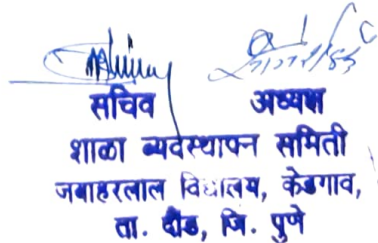 सचिव अध्यक्ष
शाळा व्यवस्थापन समिती
जवाहरलाल विद्यालय, केडगाव,
ता. दौंड, जि. पुणे